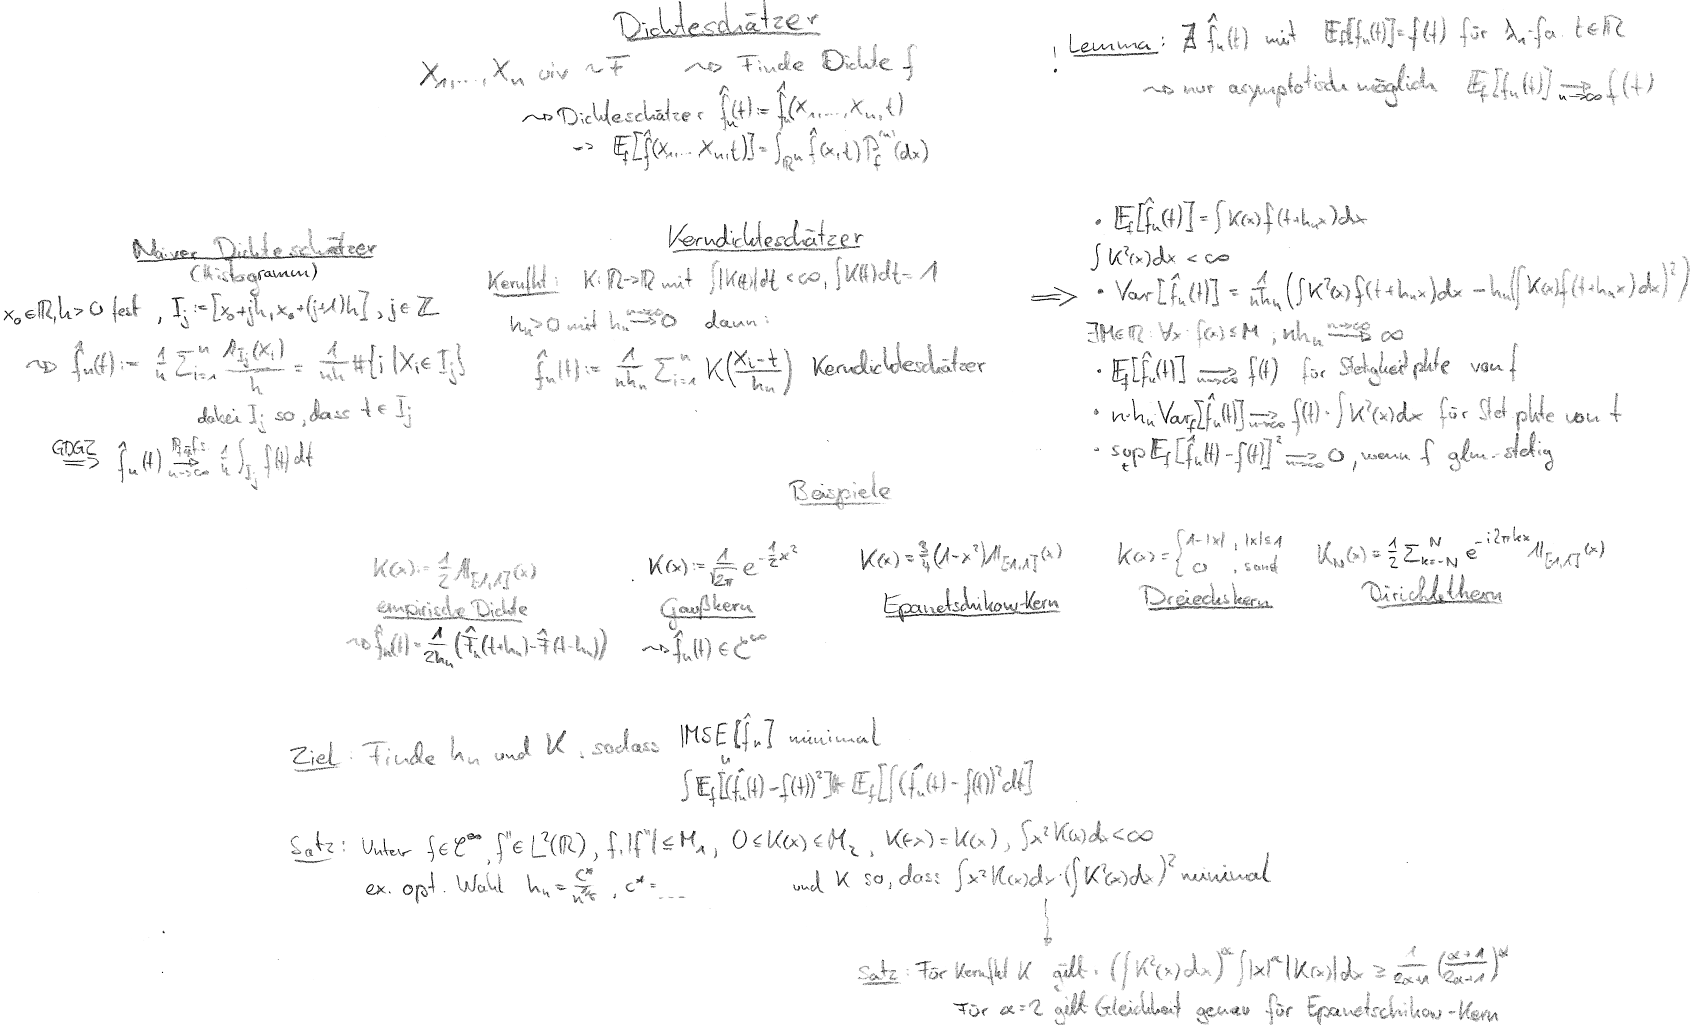 Dichteschätzer
X₁,…,Xₙ uiv ~ F ⇝ Finde Dichte f
⇝ Dichteschätzer f̂ₙ(t) := f̂ₙ(X₁,…,Xₙ,t)
⇝ 𝔼_f[f̂(X₁,…,Xₙ,t)] = ∫_ℝⁿ f̂(x,t) ℙ_f^(n)(dx)
! Lemma: ∄ f̂ₙ(t) mit 𝔼_f[f̂ₙ(t)] = f(t) für λ₁-fa. t∈ℝ
⇝ nur asymptotisch möglich 𝔼_f[f̂ₙ(t)] →_{n→∞} f(t)
Naiver Dichteschätzer
(Histogramm)
x₀∈ℝ, h>0 fest, I_j := [x₀+jh, x₀+(j+1)h], j∈ℤ
⇝ f̂ₙ(t) := 1/n ∑_{i=1}^n 𝟙_{I_j}(X_i)/h = 1/(nh) #{i | X_i ∈ I_j}
dabei I_j so, dass t ∈ I_j
GDGZ ⟹ f̂ₙ(t) →_{n→∞}^{ℙ_f-f.s.} 1/h ∫_{I_j} f(t) dt
Kerndichteschätzer
Kernfkt: K: ℝ→ℝ mit ∫|K(t)|dt < ∞, ∫K(t)dt = 1
hₙ>0 mit hₙ →^{n→∞} 0 dann:
f̂ₙ(t) := 1/(nhₙ) ∑_{i=1}^n K((X_i−t)/hₙ) Kerndichteschätzer
• 𝔼_f[f̂ₙ(t)] = ∫K(x)f(t+hₙx)dx
∫K²(x)dx < ∞
⟹ • Var[f̂ₙ(t)] = 1/(nhₙ) (∫K²(x)f(t+hₙx)dx − hₙ(∫K(x)f(t+hₙx)dx)²)
∃M∈ℝ: ∀x: f(x) ≤ M ; nhₙ →^{n→∞} ∞
• 𝔼_f[f̂ₙ(t)] →_{n→∞} f(t) für Stetigkeitspkte von f
• n·hₙ Var_f[f̂ₙ(t)] →_{n→∞} f(t)·∫K²(x)dx für Stetpkte von f
• sup_t 𝔼_f[f̂ₙ(t) − f(t)]² →_{n→∞} 0, wenn f glm. stetig
Beispiele
K(x) := 1/2 𝟙_{[-1,1]}(x)
empirische Dichte
⇝ f̂ₙ(t) = 1/(2hₙ) (F̂ₙ(t+hₙ) − F̂(t−hₙ))
K(x) := 1/√(2π) e^{−½x²}
Gaußkern
⇝ f̂ₙ(t) ∈ C^∞
K(x) = 3/4 (1−x²) 𝟙_{[-1,1]}(x)
Epanetschikow-Kern
K(x) = { 1−|x| , |x|≤1
0 , sonst
Dreieckskern
K_N(x) = 1/2 ∑_{k=−N}^N e^{−i2πkx} 𝟙_{[-1,1]}(x)
Dirichletkern
Ziel: Finde hₙ und K, sodass IMSE[f̂ₙ] minimal
∫𝔼_f[(f̂ₙ(t) − f(t))²]dt = 𝔼_f[∫(f̂ₙ(t) − f(t))² dt]
Satz: Unter f∈C^∞, f''∈L²(ℝ), f,|f''| ≤ M₁, 0≤K(x)≤M₂, K(-x)=K(x), ∫x²K(x)dx<∞
ex. opt. Wahl hₙ = c*/n^{1/5}, c* = … und K so, dass ∫x²K(x)dx·(∫K²(x)dx)² minimal
Satz: Für Kernfkt K gilt: (∫K²(x)dx)^α ∫|x|^α|K(x)|dx ≥ 1/(2α+1) ((α+1)/(2α+1))^α
Für α=2 gilt Gleichheit genau für Epanetschikow-Kern